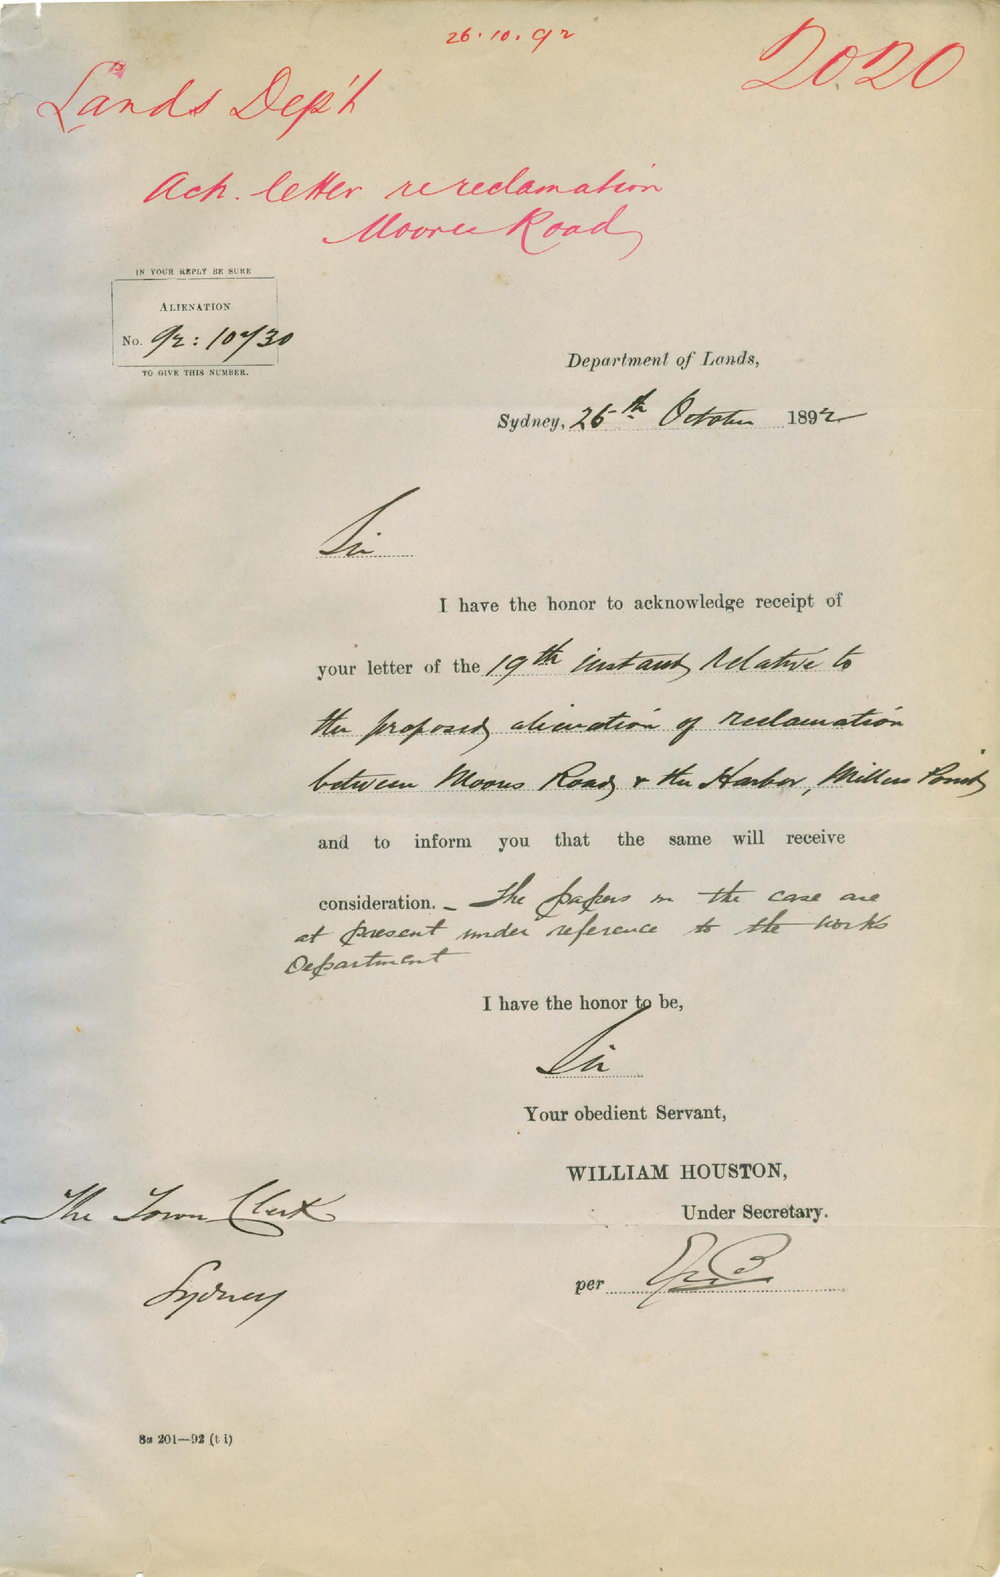 26.10.92
2020
Lands Dep't
Ack. letter re reclamation
Moores Road
IN YOUR REPLY BE SURE
ALIENATION
No. 92:10730
TO GIVE THIS NUMBER.
Department of Lands,
Sydney, 26th October 1892
Sir
I have the honor to acknowledge receipt of
your letter of the 19th instant relative to
the proposed alienation of reclamation
between Moores Road & the Harbor, Millers Point
and to inform you that the same will receive
consideration. – The papers in the case are
at present under reference to the Works
Department
I have the honor to be,
Sir
Your obedient Servant,
WILLIAM HOUSTON,
Under Secretary.
The Town Clerk
per
Sydney
8a 201—92 (t i)